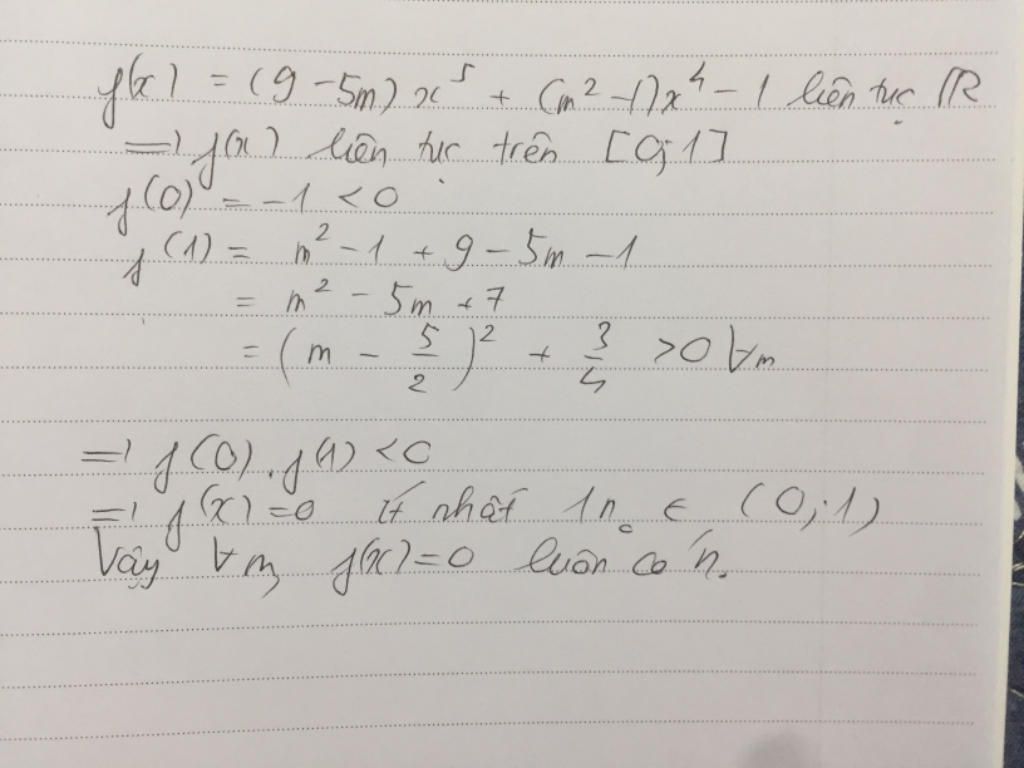 f(x) = (9 - 5m) x⁵ + (m² - 1)x⁴ - 1 liên tục ℝ
=> f(x) liên tục trên [0;1]
f(0) = -1 < 0
f(1) = m² - 1 + 9 - 5m - 1
= m² - 5m + 7
= (m - 5/2)² + 3/4 > 0 ∀m
=> f(0).f(1) < 0
=> f(x) = 0 ít nhất 1 n₀ ∈ (0;1)
Vậy ∀m, f(x) = 0 luôn có n₀